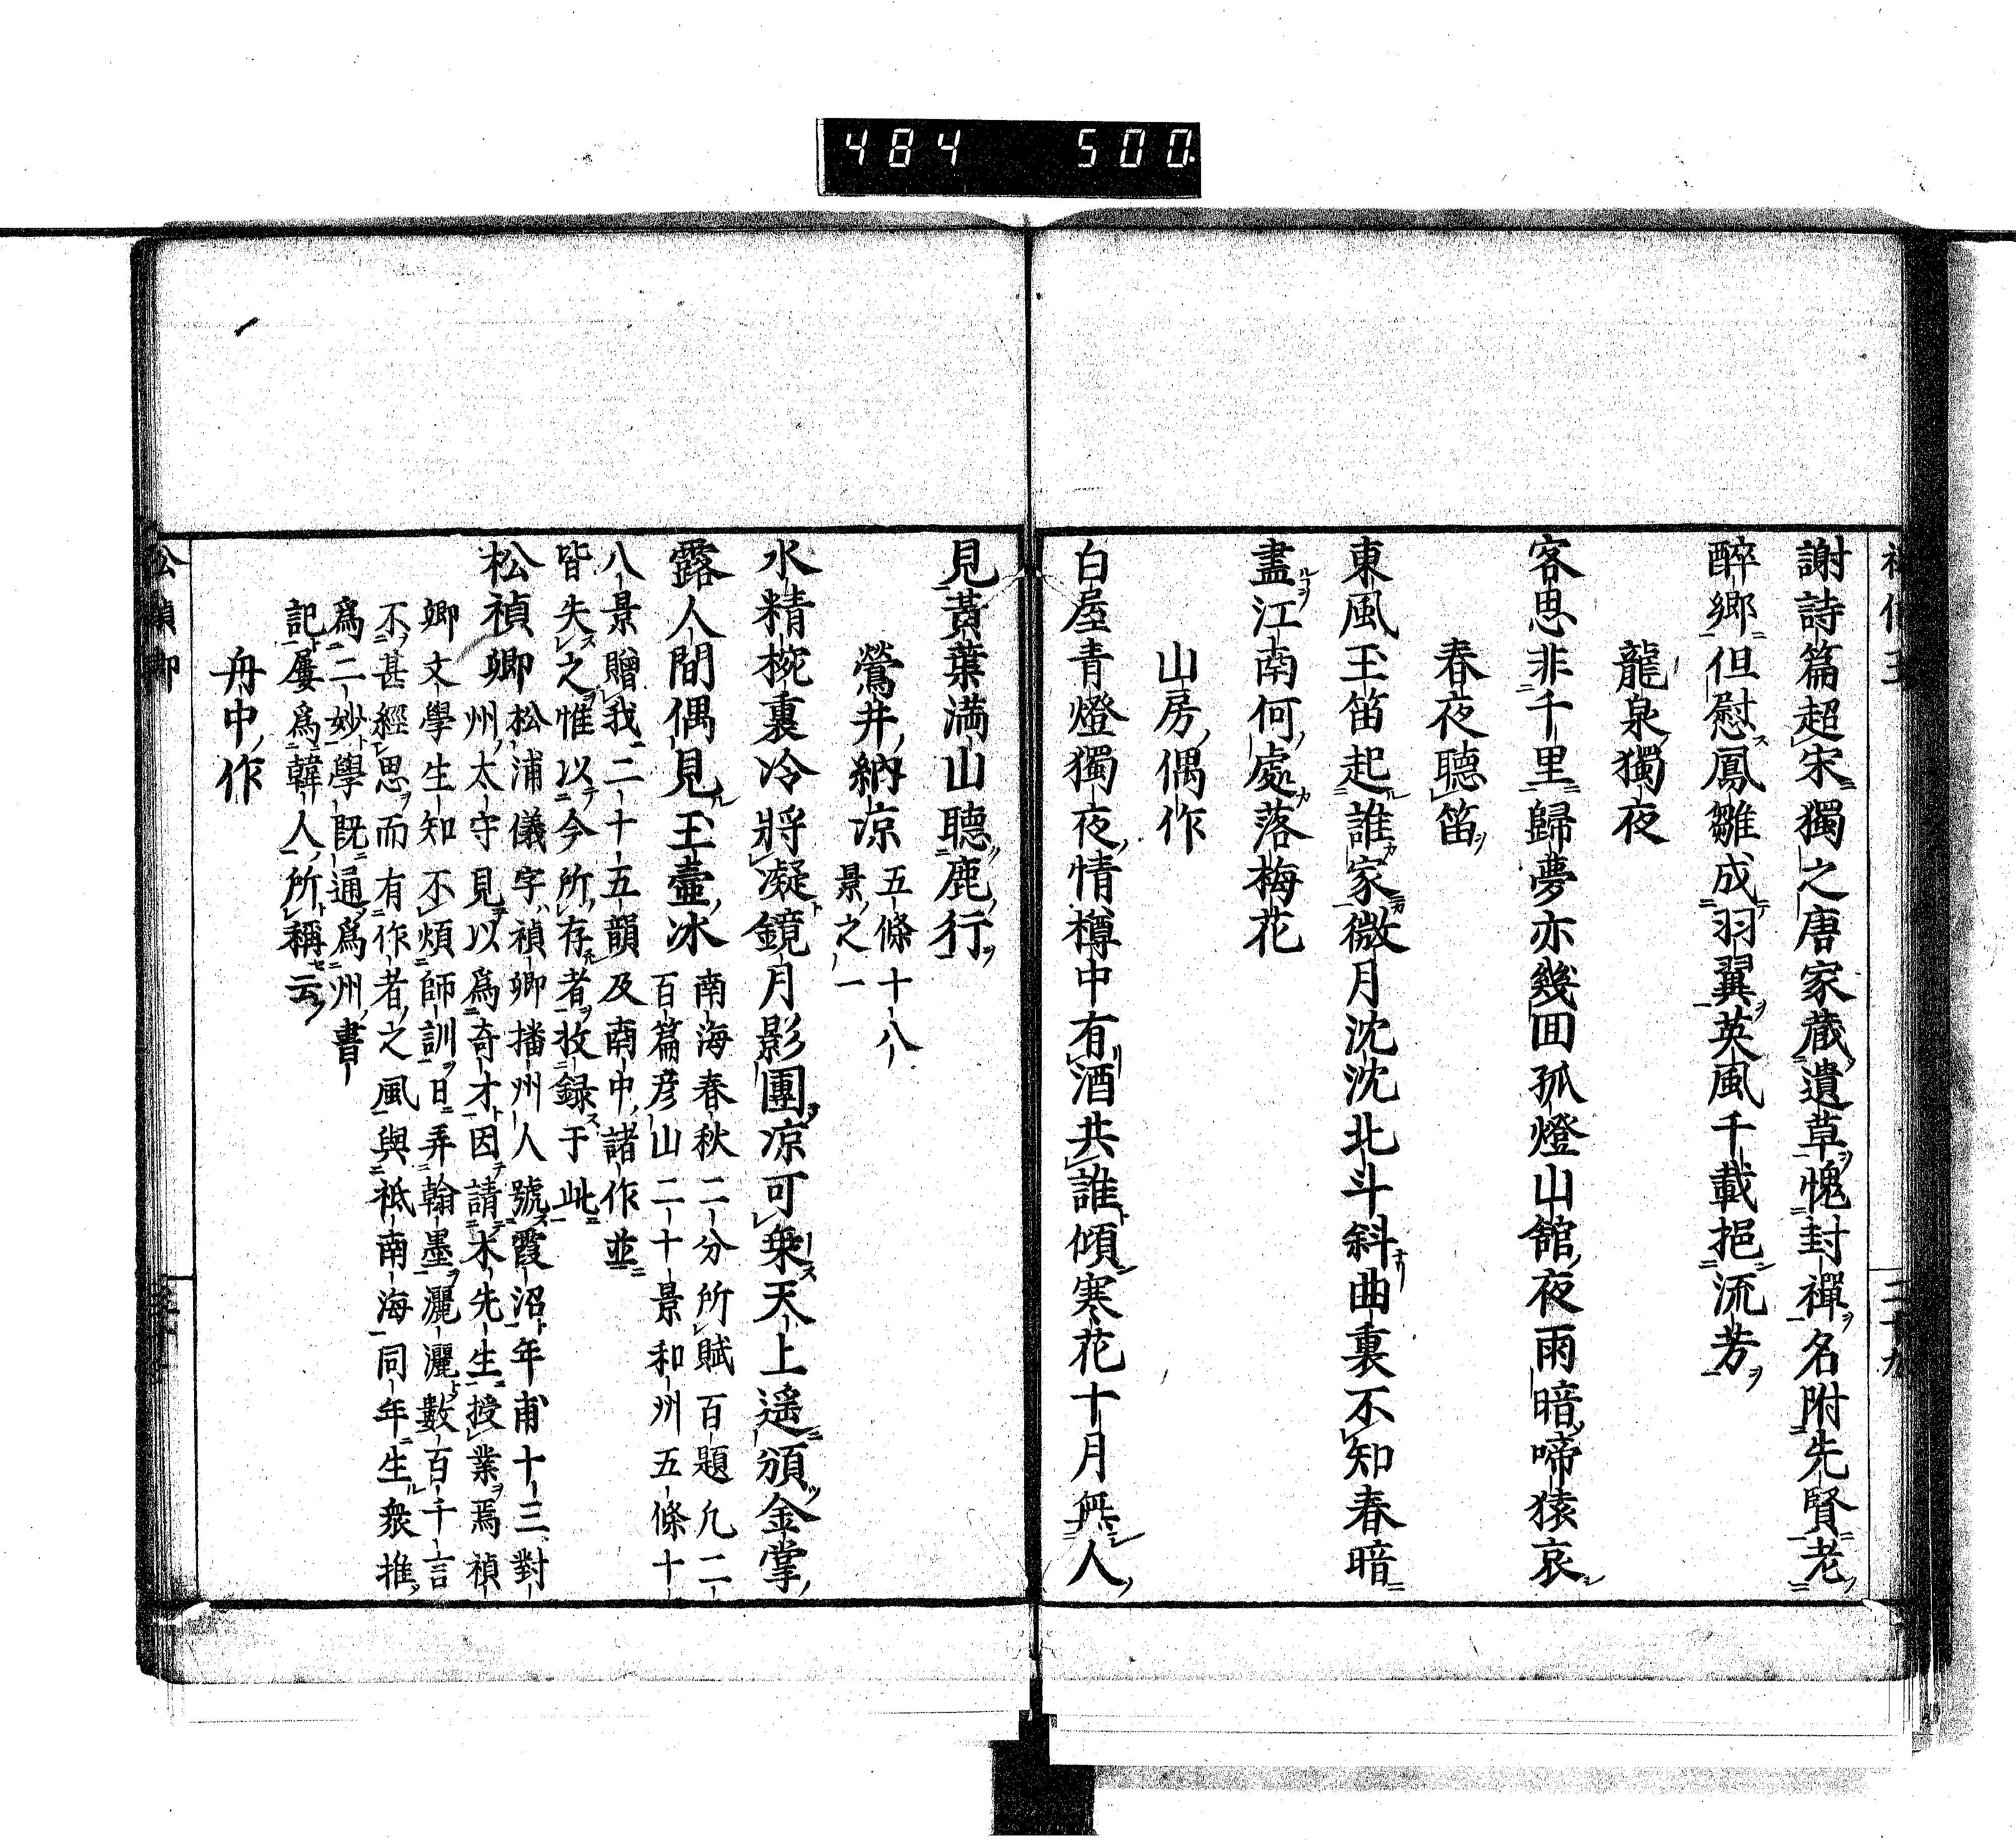 484 500
謝詩篇超宋獨之唐家蔵遺草愧封禪名附先賢老
醉鄉但慰鳳雛成羽翼英風千載挹流芳
龍泉獨夜
客思非千里歸夢亦幾囬孤燈山舘夜雨暗啼猿哀
春夜聽笛
東風玉笛起誰家微月沈沈北斗斜曲裏不知春暗
盡江南何處落梅花
山房偶作
白屋青燈獨夜情樽中有酒共誰傾寒花十月無人
見黃葉満山聽鹿行
鶯井納凉 五條十八
景之一
水精椀裏冷將凝鏡月影團凉可乗天上遥頒金掌
露人間偶見玉壷冰 南海春秋二分所賦百題凢二
百篇彦山二十景和州五條十
八景贈我二十五韻及南中諸作並
皆失之惟以今所存者收録于此
松禎卿 松浦儀字禎卿播州人號霞沼年甫十三對
州太守見以爲奇才因請木先生授業焉禎
卿文學生知不煩師訓日弄翰墨灑灑數百千言
不甚經思而有作者之風與祗南海同年生衆推
爲二妙學既通爲州書
記屢爲韓人所稱云
舟中作